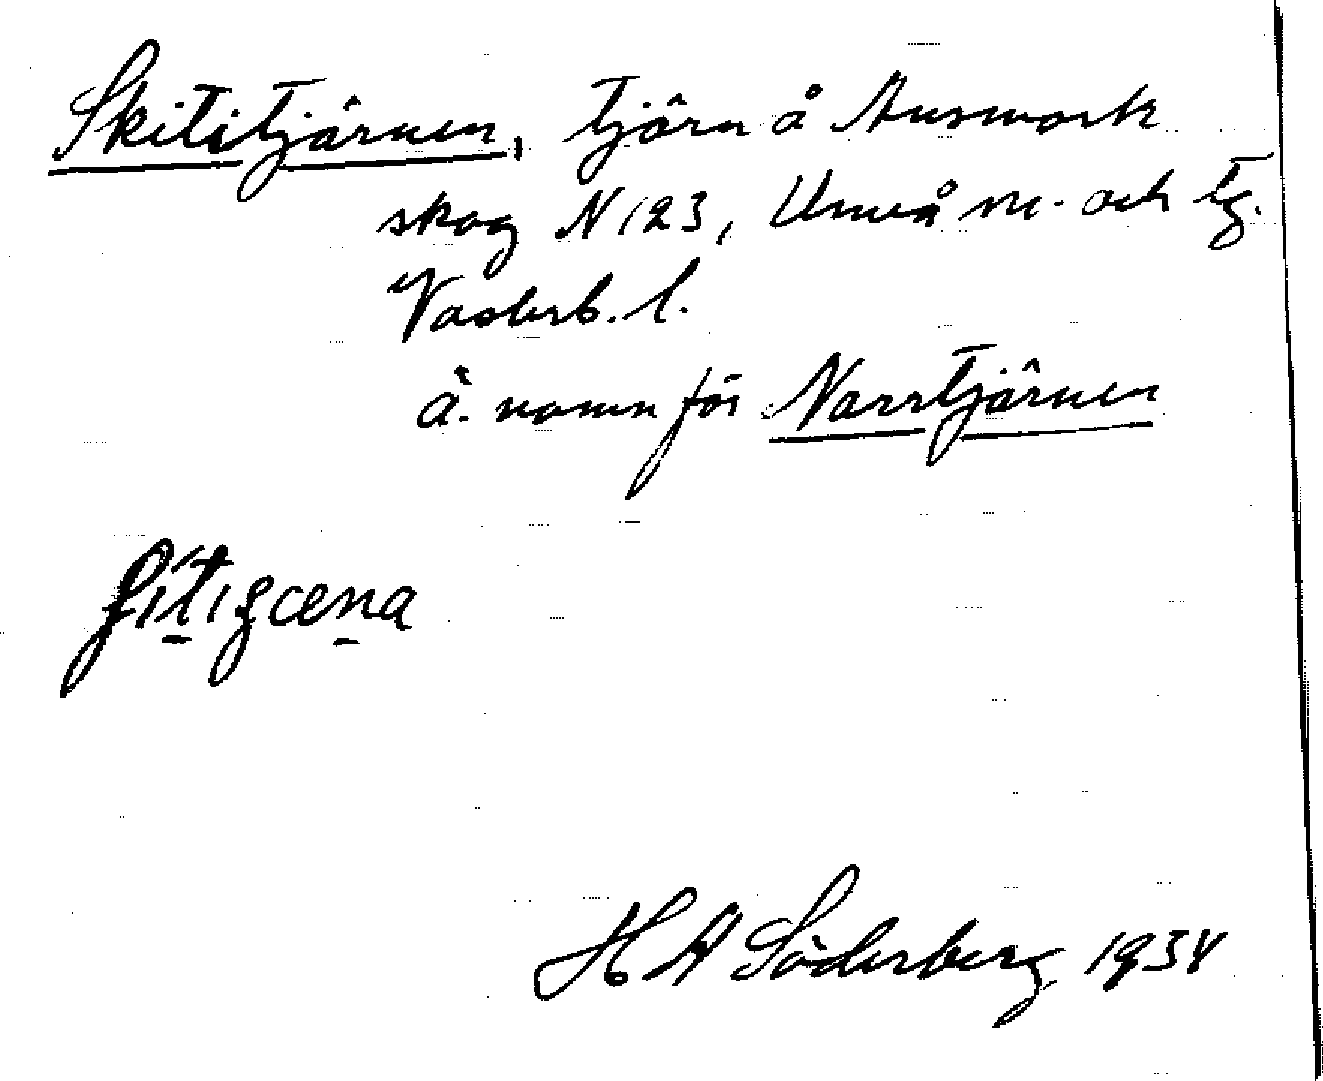 Skititjärnen, tjärn å Ansmark
skog N 123, Umeå m. och tg.
Västerb. l.
Ä. namn för Norrtjärnen
H A Söderberg 1934